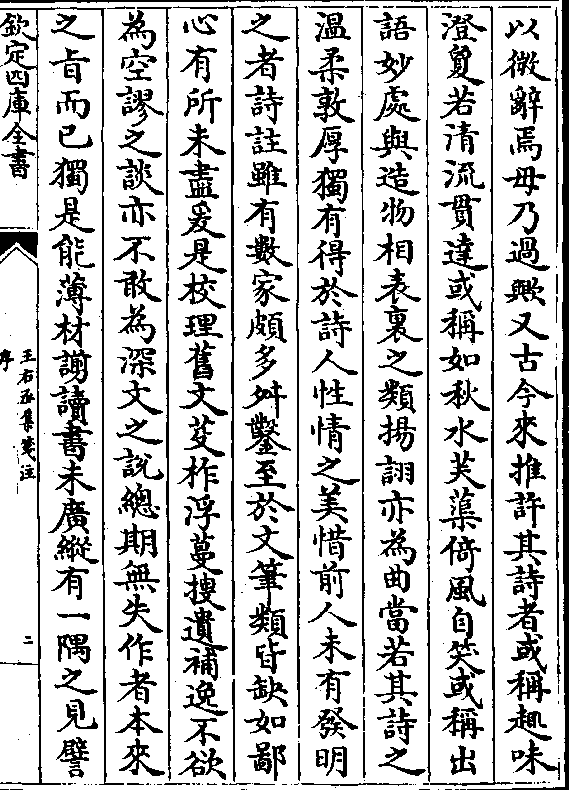 以微辭焉毋乃過歟又古今來推許其詩者或稱趣味
澄敻若清流貫達或稱如秋水芙蕖倚風自笑或稱出
語妙處與造物相表裏之類揚詡亦為曲當若其詩之
溫柔敦厚獨有得於詩人性情之美惜前人未有發明
之者詩註雖有數家頗多舛鑿至於文筆類皆缺如鄙
心有所未盡爰是校理舊文芟柞浮蔓搜遺補逸不欲
為空謬之談亦不敢為深文之說總期無失作者本來
之㫖而已獨是能薄材謭讀書未廣縱有一隅之見譬
欽定四庫全書
王右丞集箋注
序
二